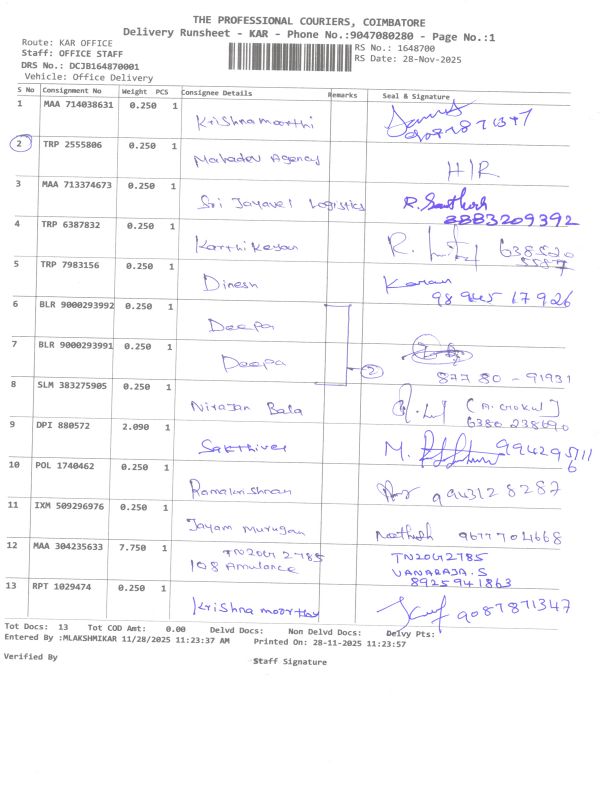 THE PROFESSIONAL COURIERS, COIMBATORE
Delivery Runsheet - KAR - Phone No.:9047080280 - Page No.:1
Route: KAR OFFICE
RS No.: 1648700
Staff: OFFICE STAFF
RS Date: 28-Nov-2025
DRS No.: DCJB164870001
Vehicle: Office Delivery
S No Consignment No Weight PCS Consignee Details Remarks Seal & Signature
1 MAA 714038631 0.250 1 Krishnamoorthi
2 TRP 2555806 0.250 1 Mahadev Agency H/R
3 MAA 713374673 0.250 1 Sri Jayavel Logistics R. Santhosh
8883209392
4 TRP 6387832 0.250 1 Karthikeyan R. 638520
5587
5 TRP 7983156 0.250 1 Dinesh Karan
98 945 17 926
6 BLR 9000293992 0.250 1 Deepa
7 BLR 9000293991 0.250 1 Deepa 2
87780 - 91931
8 SLM 383275905 0.250 1 Nirajan Bala [A. Gokul]
6380 238690
9 DPI 880572 2.090 1 Sakthivel M. 994295711
6
10 POL 1740462 0.250 1 Ramakrishnan 9943128287
11 IXM 509296976 0.250 1 Jayam Murugan 9677704668
12 MAA 304235633 7.750 1 TN20G2785 TN20G2785
108 Amulance VANARAJA.S
8925941863
13 RPT 1029474 0.250 1 Krishna moorthy 9087871347
Tot Docs: 13 Tot COD Amt: 0.00 Delvd Docs: Non Delvd Docs: Delvy Pts:
Entered By :MLAKSHMIKAR 11/28/2025 11:23:37 AM Printed On: 28-11-2025 11:23:57
Verified By
Staff Signature